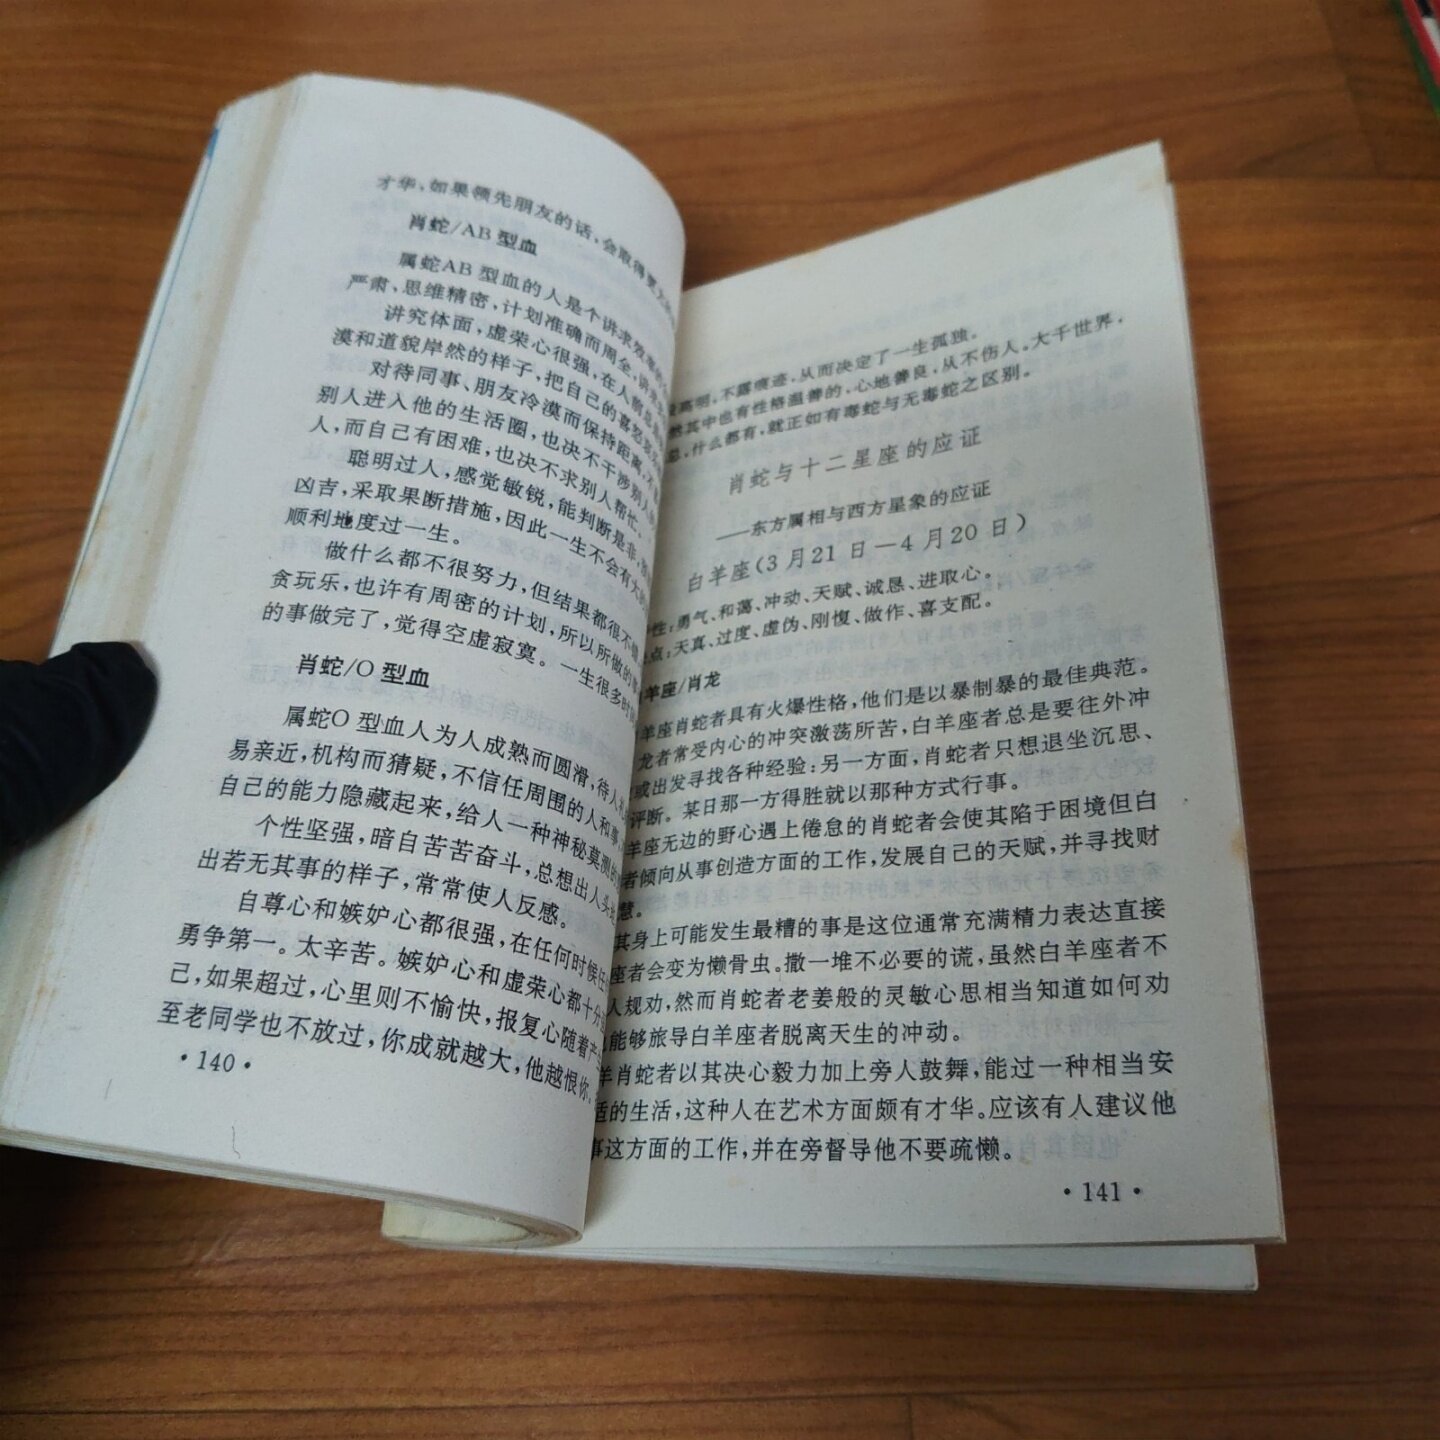 才华，如果领先朋友的话，会取得更大的
肖蛇/AB 型血
属蛇AB 型血的人是个讲求效率的
严肃、思维精密，计划准确而周全，讲
讲究体面，虚荣心很强，在人前总是
漠和道貌岸然的样子，把自己的喜怒哀
对待同事、朋友冷漠而保持距离，不
别人进入他的生活圈，也决不干涉别人的
人，而自己有困难，也决不求别人帮忙。
聪明过人，感觉敏锐，能判断是非，
凶吉，采取果断措施，因此一生不会有大的
顺利地度过一生。
做什么都不很努力，但结果都很不错，
贪玩乐，也许有周密的计划，所以所做的事
的事做完了，觉得空虚寂寞。一生很多时
肖蛇/O 型血
属蛇O 型血人为人成熟而圆滑，待人
易亲近，机构而猜疑，不信任周围的人和事，
自己的能力隐藏起来，给人一种神秘莫测的
个性坚强，暗自苦苦奋斗，总想出人头
出若无其事的样子，常常使人反感。
自尊心和嫉妒心都很强，在任何时候
勇争第一。太辛苦。嫉妒心和虚荣心都十分
己，如果超过，心里则不愉快，报复心随着产
至老同学也不放过，你成就越大，他越恨你。
·140·
高明，不露痕迹，从而决定了一生孤独。
然其中也有性格温善的，心地善良，从不伤人。大千世界，
，什么都有，就正如有毒蛇与无毒蛇之区别。
肖蛇与十二星座的应证
——东方属相与西方星象的应证
白羊座（3月21日—4月20日）
性：勇气、和蔼、冲动、天赋、诚恳、进取心。
点：天真、过度、虚伪、刚愎、做作、喜支配。
羊座/肖龙
羊座肖蛇者具有火爆性格，他们是以暴制暴的最佳典范。
龙者常受内心的冲突激荡所苦，白羊座者总是要往外冲
或出发寻找各种经验：另一方面，肖蛇者只想退坐沉思、
评断。某日那一方得胜就以那种方式行事。
羊座无边的野心遇上倦怠的肖蛇者会使其陷于困境但白
者倾向从事创造方面的工作，发展自己的天赋，并寻找财
慧。
其身上可能发生最糟的事是这位通常充满精力表达直接
座者会变为懒骨虫。撒一堆不必要的谎，虽然白羊座者不
人规劝，然而肖蛇者老姜般的灵敏心思相当知道如何劝
能够旅导白羊座者脱离天生的冲动。
羊肖蛇者以其决心毅力加上旁人鼓舞，能过一种相当安
适的生活，这种人在艺术方面颇有才华。应该有人建议他
事这方面的工作，并在旁督导他不要疏懒。
·141·